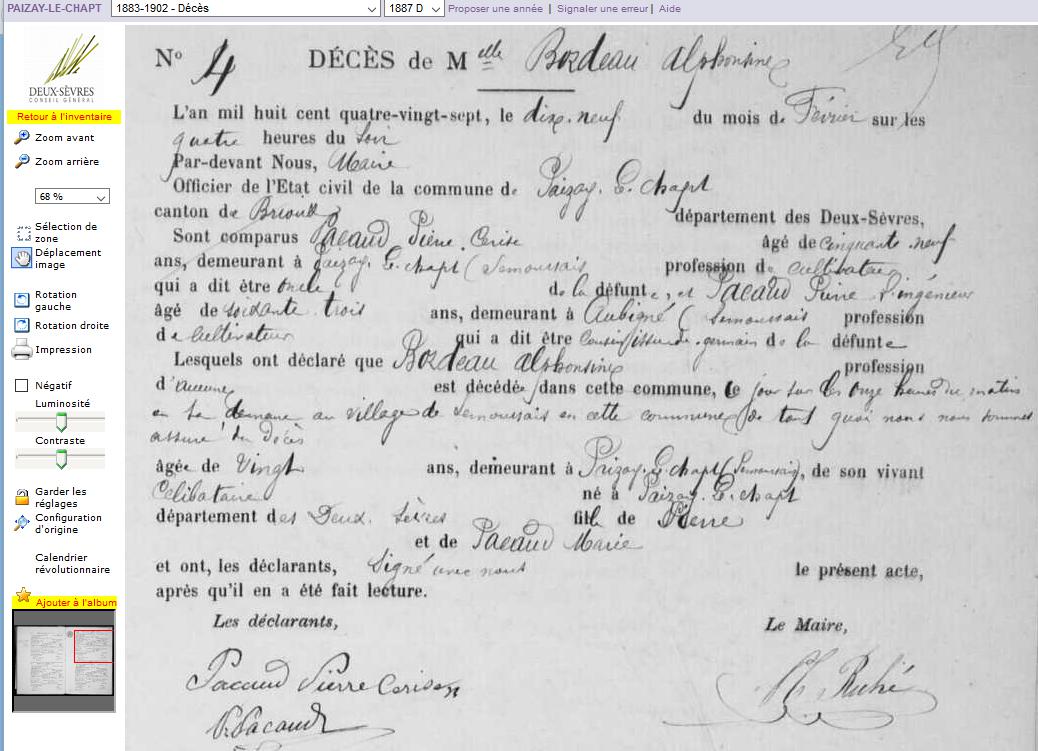 PAIZAY-LE-CHAPT
1883-1902 - Décès
1887 D
Proposer une année | Signaler une erreur | Aide
DEUX-SÈVRES
CONSEIL GÉNÉRAL
Retour à l'inventaire
Zoom avant
Zoom arrière
68 %
Sélection de
zone
Déplacement
image
Rotation
gauche
Rotation droite
Impression
Négatif
Luminosité
Contraste
Garder les
réglages
Configuration
d'origine
Calendrier
révolutionnaire
Ajouter à l'album
No 4 DÉCÈS de Melle Bordeau Alphonsine
L'an mil huit cent quatre-vingt-sept, le dix-neuf du mois de Février sur les
quatre heures du Soir
Par-devant Nous, Maire
Officier de l'Etat civil de la commune de Paizay-le-chapt
canton de Brioux département des Deux-Sèvres,
Sont comparus Pacaud Pierre Cerise âgé de cinquante neuf
ans, demeurant à Paizay-le-chapt (Semoussais profession de cultivateur
qui a dit être oncle de la défunte, et Pacaud Pierre l'ingénieur
âgé de soixante trois ans, demeurant à Aubigné (Semoussais profession
de cultivateur qui a dit être Cousin issu de germain de la défunte
Lesquels ont déclaré que Bordeau alphonsine profession
d'aucune est décédée dans cette commune, ce jour sur les onze heures du matin
en sa demeure au village de Semoussais en cette commune de tout quoi nous nous sommes
assuré du Décès
âgée de Vingt ans, demeurant à Paizay-le-chapt (Semoussais), de son vivant
Célibataire né à Paizay-le-chapt
département des Deux-Sèvres fille de Pierre
et de Pacaud Marie
et ont, les déclarants, Signé avec nous le présent acte,
après qu'il en a été fait lecture.
Les déclarants, Le Maire,
Pacaud Pierre Cerisen
P. Pacaud